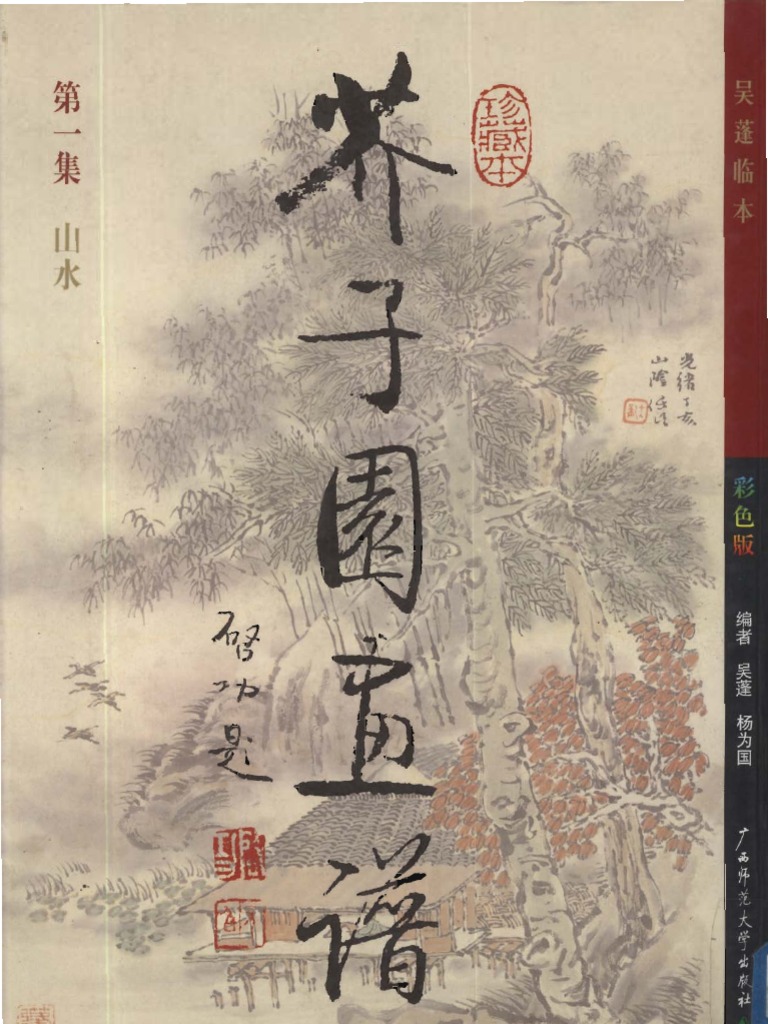 第一集 山水
芥子園畫谱
珍藏本
启功题
光绪丁亥
山陰任
吴蓬临本
彩色版
编者 吴蓬 杨为国
广西师范大学出版社